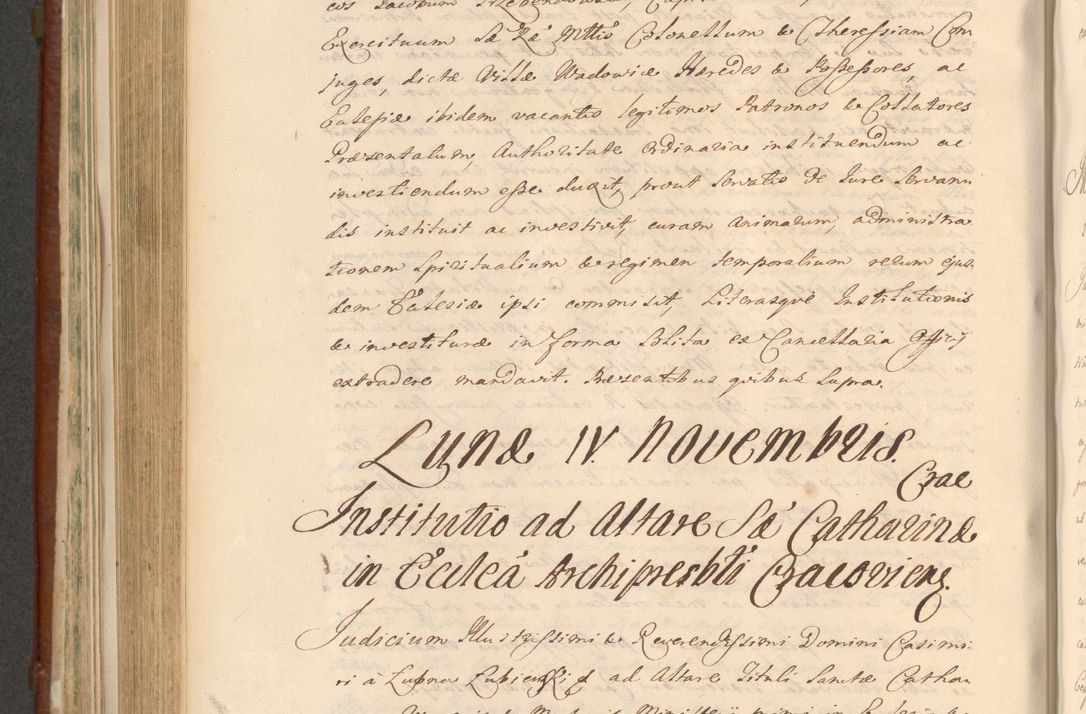 Exercituum Sæ Ræ Mttis Colonellum & Theressiam Con
juges, dictæ Villæ Wadowice Hæredes & Possessores, ac
Ealesiæ ibidem vacantis legitimos Patronos & Collatores
Præsentatum, Authoritate Ordinaria instituendum ac
investiendum esse duxit, prout Servatis de Jure Servan
dis instituit ac investivit, curam animarum, administra
tionem Spiritualium & regimen temporalium rerum ejus
dem Ecclesiæ ipsi commisit, Literasque Institutionis
& investituræ in forma Solita ex Cancellaria Officij
extradere mandavit. Præsentibus quibus Supra.
Lunæ IV. Novembris.
Crac
Institutio ad Altare Sæ Catharinæ
in Ecclea Archipresbti Cracovieng.
Judicium Illustrissimi & Reverendissimi Domini Casimi
ri à Lubna Lubienski ad Altare Tituli Sanctæ Cathar